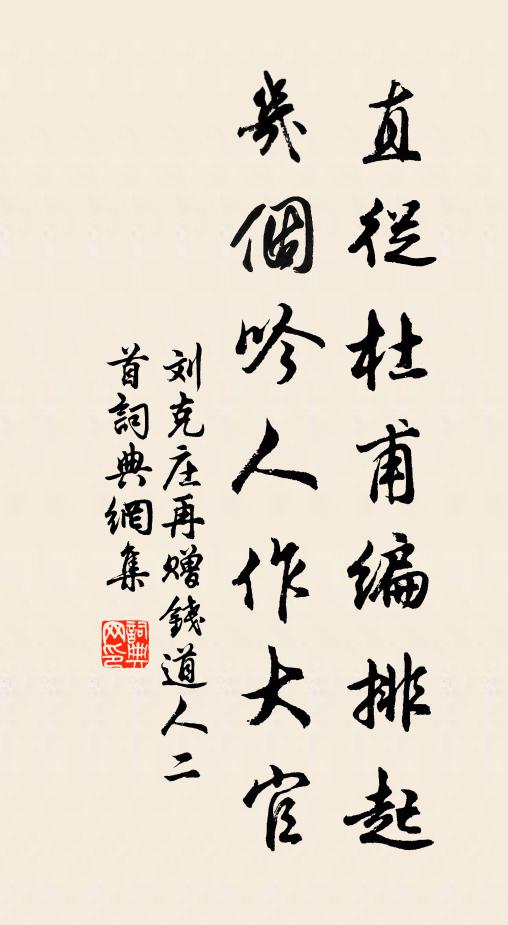 直從杜甫編排起
幾個吟人作大官
刘克庄再赠錢道人二
首詞典網集
詞典
网印